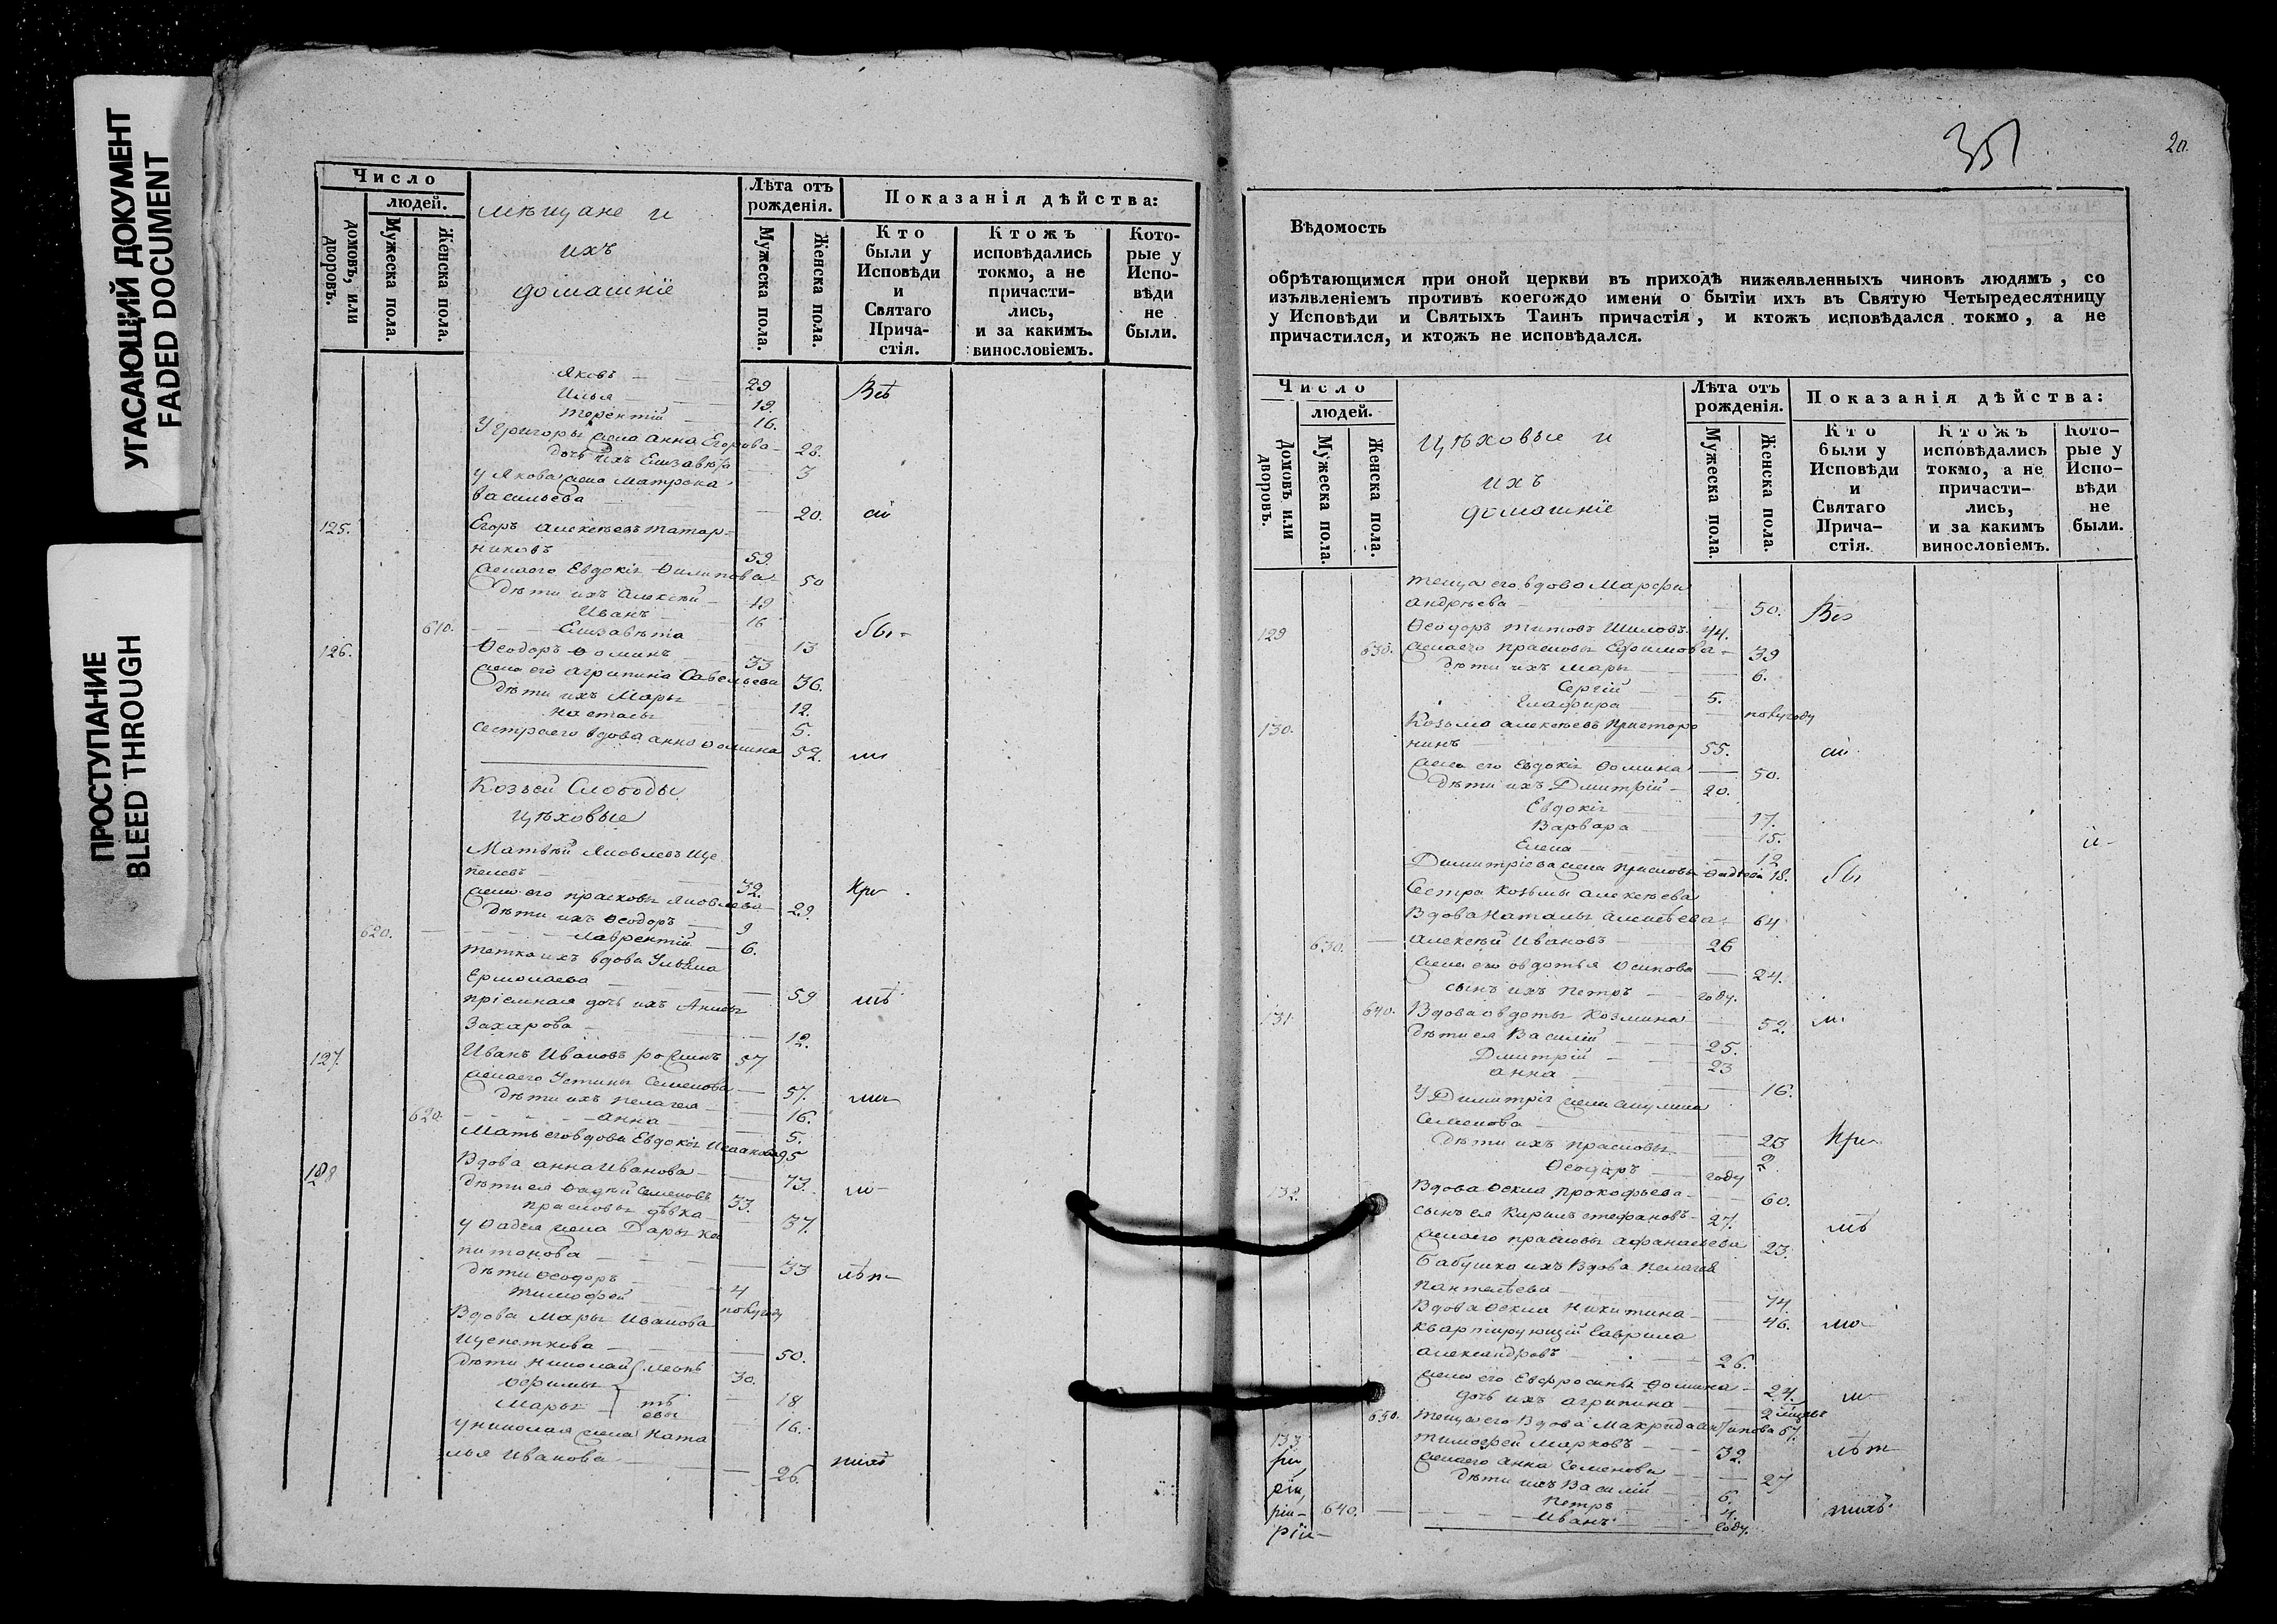 УГАСАЮЩИЙ ДОКУМЕНТ
FADED DOCUMENT
ПРОСТУПАНИЕ
BLEED THROUGH
Число
людей.
домовъ, или дворовъ.
Мужеска пола.
Женска пола.
мѣщане и
ихъ
домашніе
Лѣта отъ рожденія.
Мужеска пола.
Женска пола.
Показанія дѣйства:
Кто были у Исповѣди и Святаго Прича-стія.
Ктожъ исповѣдались токмо, а не причасти-лись, и за какимъ винословіемъ.
Кото-рые у Испо-вѣди не были.
Яковъ — 29 Всѣ
Илья — 19.
Терентій — 16.
У Григорья жена Анна Егорова — 28.
дочь ихъ Елизавета 3
у Якова жена Матрона
Васильева — 20. сіи
125. Егоръ Алексѣевъ Татар-
никовъ 59.
жена его Евдокія Филипова 50
дѣти ихъ Алексѣй — 19
Иванъ 16
610. Елизавѣта 13 бы-
126. Ѳеодоръ Ѳоминъ 33
жена его Агрипина Савельева 36.
дѣти ихъ Марья 12.
Настасья 5.
сестра его вдова Анна Ѳомина 52. ли
Козьей Слободы
цѣховые
Матвѣй Яковлевъ Ще
пелевъ — 32. при
жена его Прасковья Яковлева 29.
дѣти ихъ Ѳеодоръ — 9
620. Лаврентій — 6.
тетка ихъ вдова Ульяна
Ермолаева — 59
пріемная дочь ихъ
Захарова — 12.
127. Иванъ Ивановъ 57
жена его Устинья Семенова — 57.
дѣти ихъ Пелагея 16.
620. Анна 5.
Мать его вдова Евдокія Исаакова 95
128 Вдова Анна Иванова — 73.
дѣти ея Ѳадѣй Семеновъ 33.
Прасковья дѣвка 37.
у Ѳадея жена Дарья Ка
питонова — 33
дѣти Ѳеодоръ — 4
Тимофей полугоду
Вдова Марья Иванова
Щепеткова — 50.
дѣти Николай 30.
18
Марья 16.
у Николая жена Ната
лья Иванова — 26.
20.
Вѣдомость
обрѣтающимся при оной церкви въ приходѣ нижеявленныхъ чиновъ людямъ, со
изъявленіемъ противъ коегождо имени о бытіи ихъ въ Святую Четыредесятницу
у Исповѣди и Святыхъ Таинъ причастія, и ктожъ исповѣдался токмо, а не
причастился, и ктожъ не исповѣдался.
Число
людей.
Домовъ или дворовъ.
Мужеска пола.
Женска пола.
цѣховые и
ихъ
домашніе
Лѣта отъ рожденія.
Мужеска пола.
Женска пола.
Показанія дѣйства:
Кто были у Исповѣди и Святаго Прича-стія.
Ктожъ исповѣдались токмо, а не причасти-лись, и за какимъ винословіемъ.
Кото-рые у Испо-вѣди не были.
теща его вдова Марфа
Андрѣева — 50. Всѣ
129 Ѳеодоръ Титовъ Шиловъ 44.
630. жена его Прасковья Ефимова 39
дѣти ихъ Марья 6.
Сергій 5.
Глафира полугоду
130. Козьма Алексѣевъ
нинъ 55. сіи
жена его Евдокія Ѳомина 50.
дѣти ихъ Дмитрій — 20.
Евдокія 17.
Варвара 15.
Елена 12
Димитріева жена Прасковья 18. бы
Сестра Козьмы Алексѣева
Вдова Наталья Алексѣева 64
630. Алексѣй Ивановъ 26
жена его Овдотья Осипова 24.
сынъ ихъ Петръ — году.
131. 640. Вдова Овдотья Козмина 52. ли
дѣти ея Василій 25.
Дмитрій — 23
Анна 16.
У Димитрія жена Акулина
Семенова 23 при
дѣти ихъ Прасковья 2
Ѳеодоръ году
132. Вдова Ѳекла Прокофьева — 60.
сынъ ея Кирилъ Стефановъ 27.
жена его Прасковья Афанасьева 23.
Бабушка ихъ Вдова Пелагея
Пантелѣева 74.
Вдова Ѳекла Никитина 46.
квартирующій Гаврила
Александровъ 26.
жена его Евфросинья Ѳомина 24.
дочь ихъ Агрипина
650. теща его Вдова Макрида
133 Тимофей Марковъ 32. лѣт
жена его Анна Семенова 27
дѣти ихъ Василій 6.
Петръ 4.
640. Иванъ году.